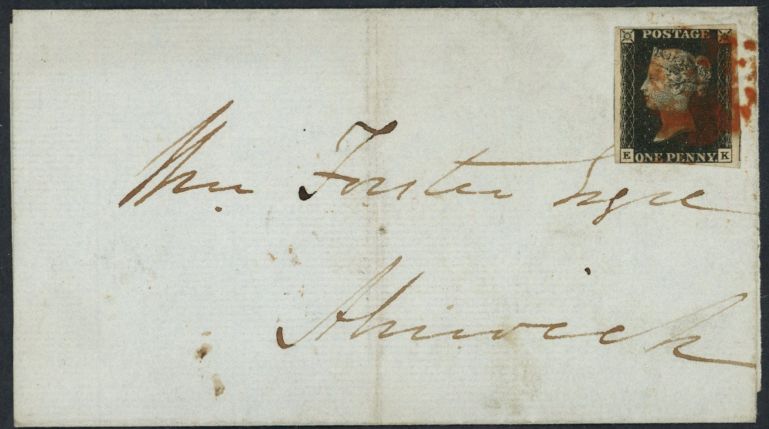 POSTAGE
E ONE PENNY K
Wm Forster Esqre
Alnwick